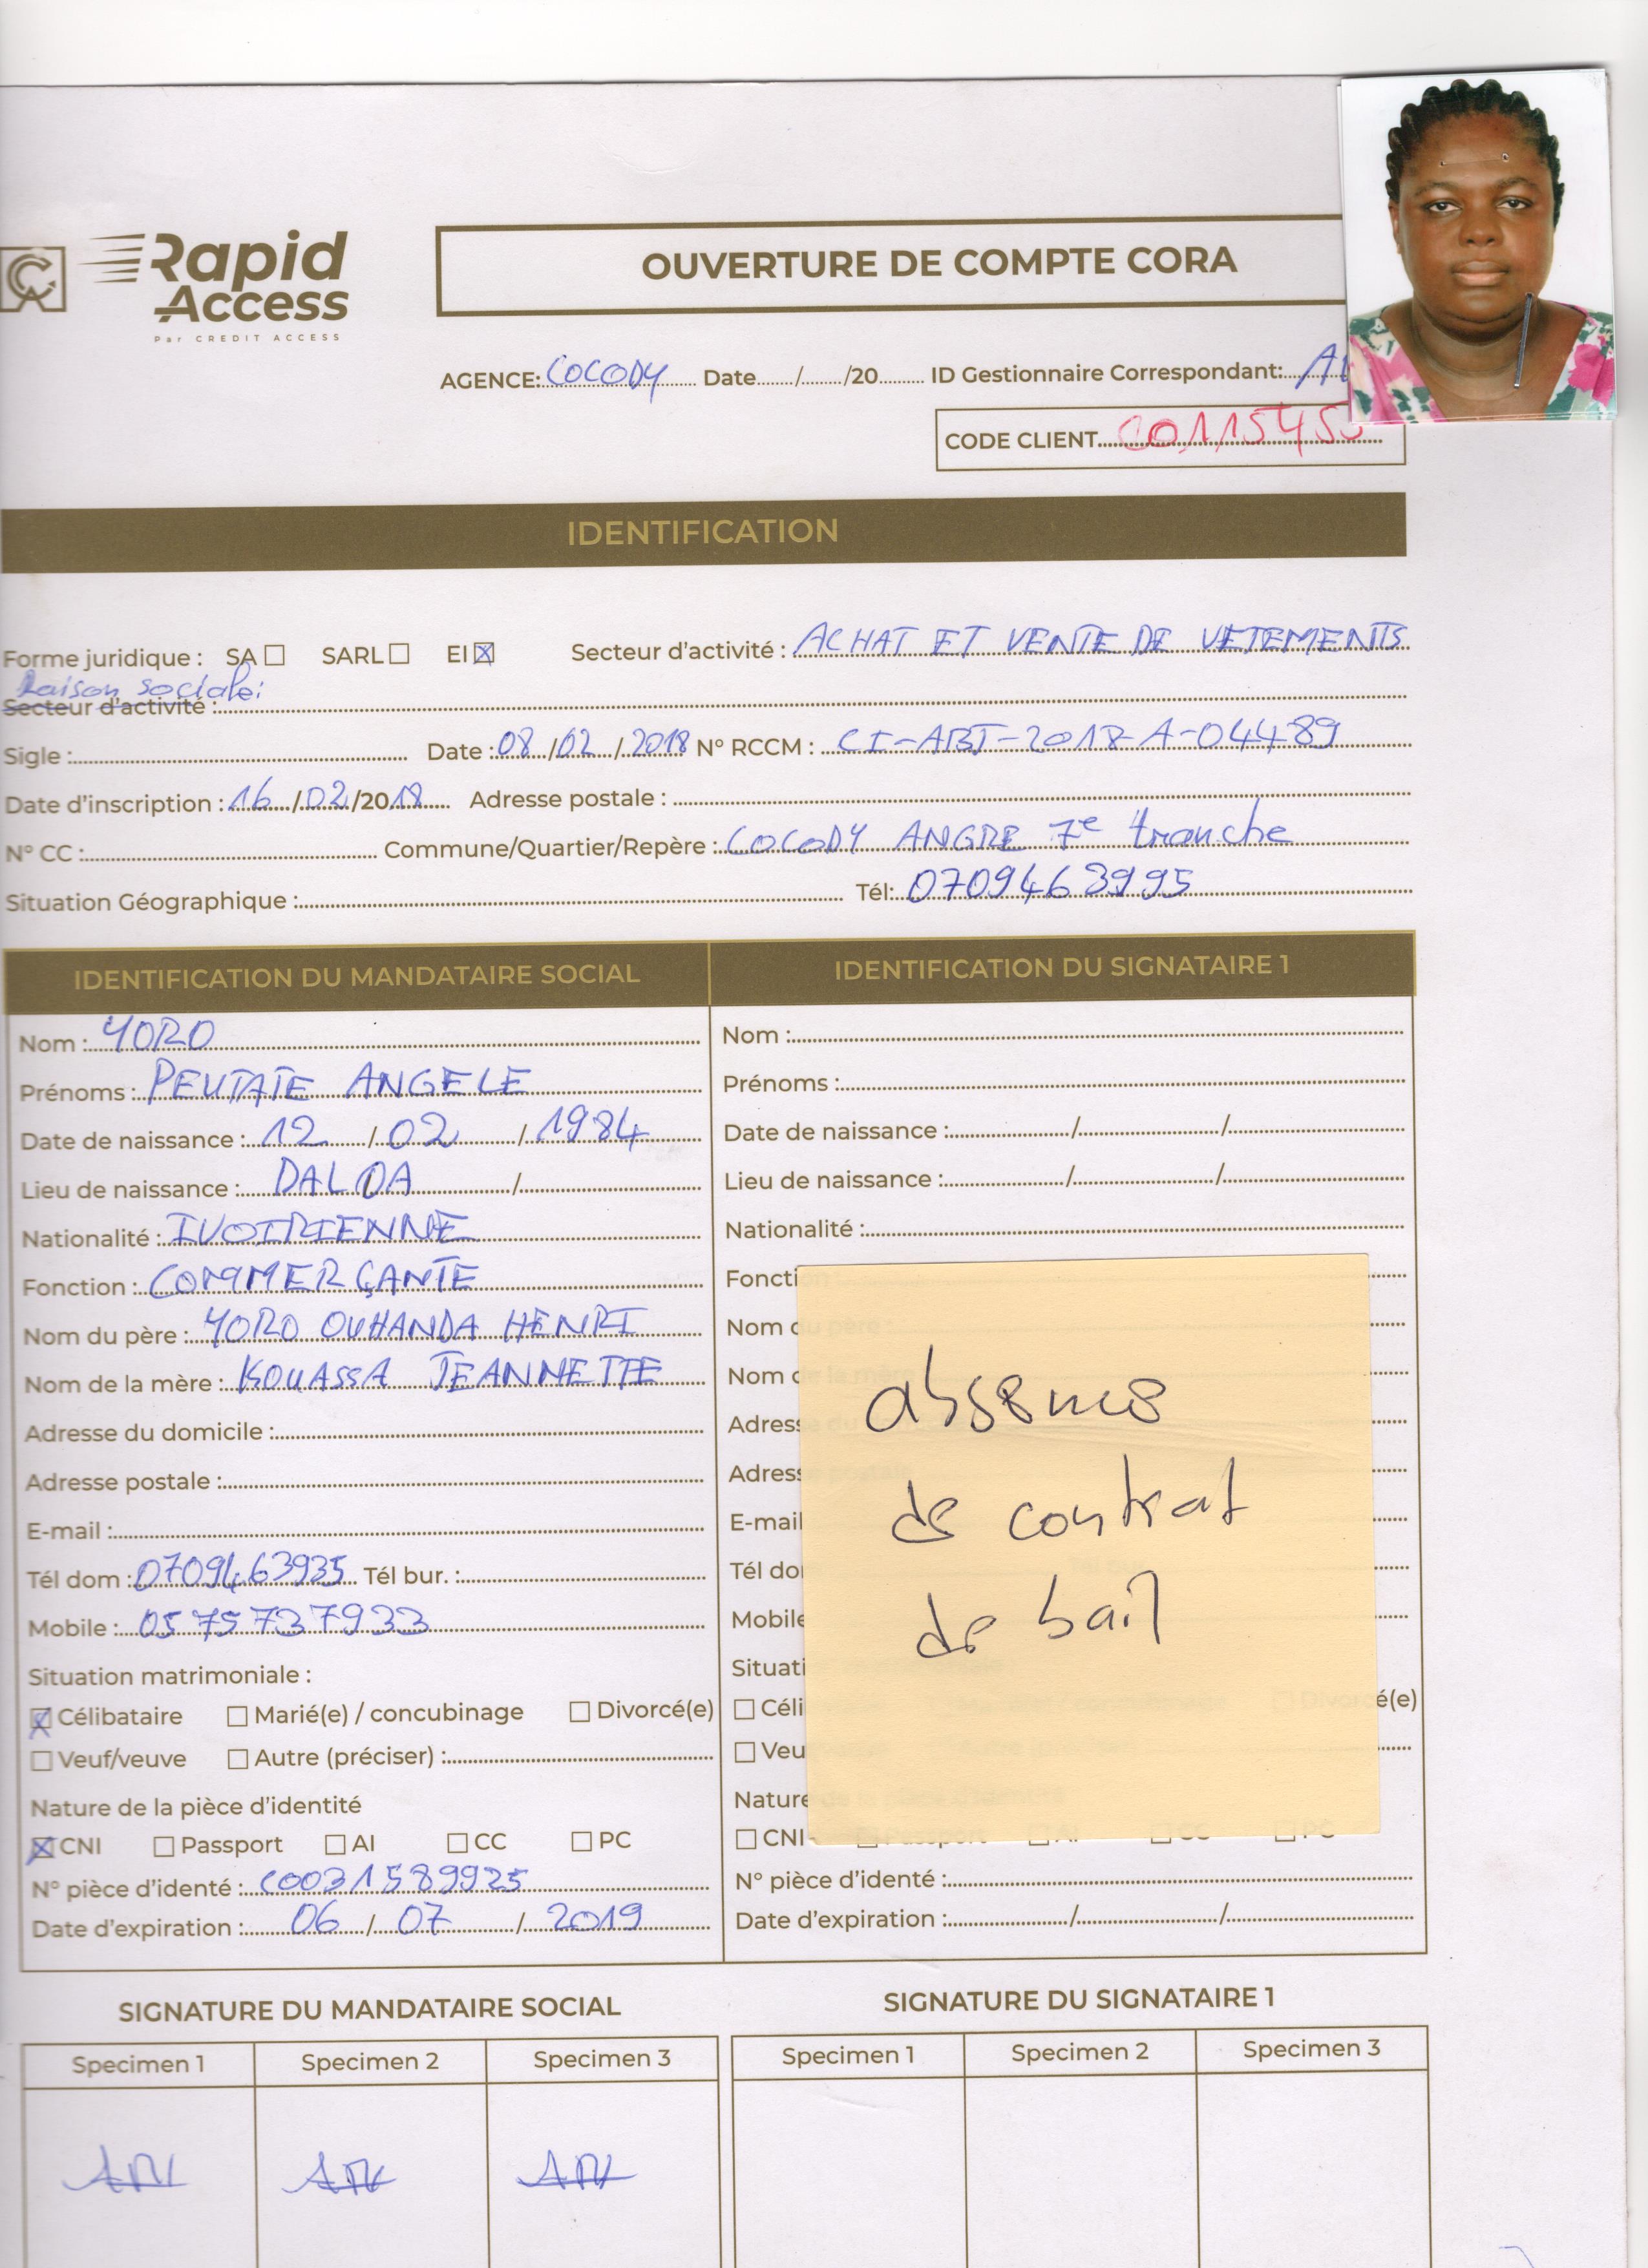 Rapid
Access
Par CREDIT ACCESS
OUVERTURE DE COMPTE CORA
AGENCE: COCODY Date / /20 ID Gestionnaire Correspondant:
CODE CLIENT
IDENTIFICATION
Forme juridique : SA ☐ SARL ☐ EI ☒ Secteur d'activité : ACHAT ET VENTE DE VETEMENTS
Raison sociale:
Secteur d'activité :
Sigle : Date : 08 / 02 / 2018 N° RCCM : CI-ABJ-2018-A-04489
Date d'inscription : 16 / 02 /2018 Adresse postale :
N° CC : Commune/Quartier/Repère : COCODY ANGRE 7e tranche
Situation Géographique : Tél: 0709463995
IDENTIFICATION DU MANDATAIRE SOCIAL IDENTIFICATION DU SIGNATAIRE 1
Nom : YORO Nom :
Prénoms : PEUTATE ANGELE Prénoms :
Date de naissance : 12 / 02 / 1984 Date de naissance : / /
Lieu de naissance : DALOA / Lieu de naissance : / /
Nationalité : IVOIRIENNE Nationalité :
Fonction : COMMERÇANTE Foncti
Nom du père : YORO OUHANDA HENRI Nom du père :
Nom de la mère : KOUASSA JEANNETTE Nom de la mère
Adresse du domicile : Adress
Adresse postale : Adress
E-mail : E-mail
Tél dom : 0709463935 Tél bur. : Tél do
Mobile : 0575737933 Mobile
Situation matrimoniale : Situati
☒ Célibataire ☐ Marié(e) / concubinage ☐ Divorcé(e) ☐ Céli ☐ Divorcé(e)
☐ Veuf/veuve ☐ Autre (préciser) : ☐ Veu
Nature de la pièce d'identité Nature
☒ CNI ☐ Passport ☐ AI ☐ CC ☐ PC ☐ CNI ☐ Passport ☐ AI ☐ CC ☐ PC
N° pièce d'identé : C0031589925 N° pièce d'identé :
Date d'expiration : 06 / 07 / 2019 Date d'expiration : / /
absence
de contrat
de bail
SIGNATURE DU MANDATAIRE SOCIAL SIGNATURE DU SIGNATAIRE 1
Specimen 1 Specimen 2 Specimen 3 Specimen 1 Specimen 2 Specimen 3